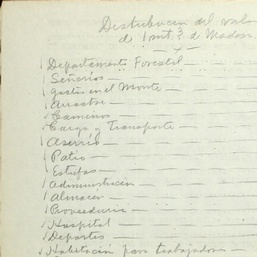 Distribucion del valo
de 1 mt.³ de Madera
Departamento Forestal
Señorios
gastos en el Monte
Arrastre
Caminos
Carga y Transporte
Aserrio
Patio
Estufas
Administracion
Almacen
Proveeduria
Hospital
Deportes
Habitación para trabajadores